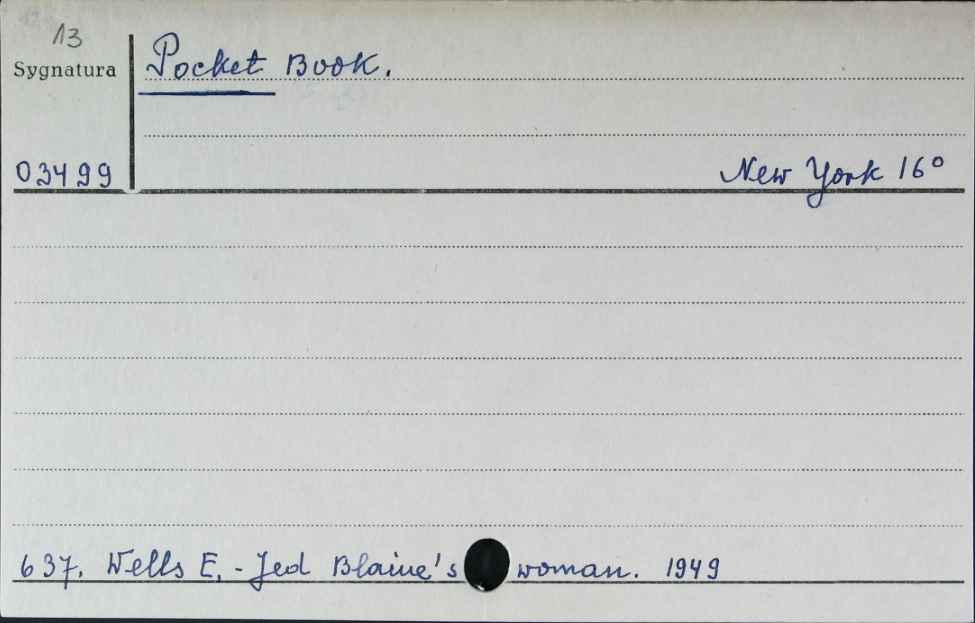 13
Sygnatura
Pocket Book.
03499
New York 16°
637. Wells E. - Jed Blaine's woman. 1949